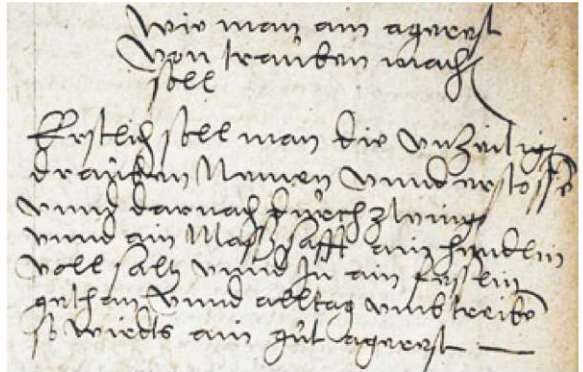 Wie man ain agerest
von trauben mach
soll
Erstlich soll man die vnzeitig
drauben Nemen vnnd erstosse
vnnd darnach durch zwing
vnnd ain Mass safft ain hendlin
voll saltz vnnd In ain feslin
gethan vnnd alltag vmbtreibe
so wirdts ain gut agerest